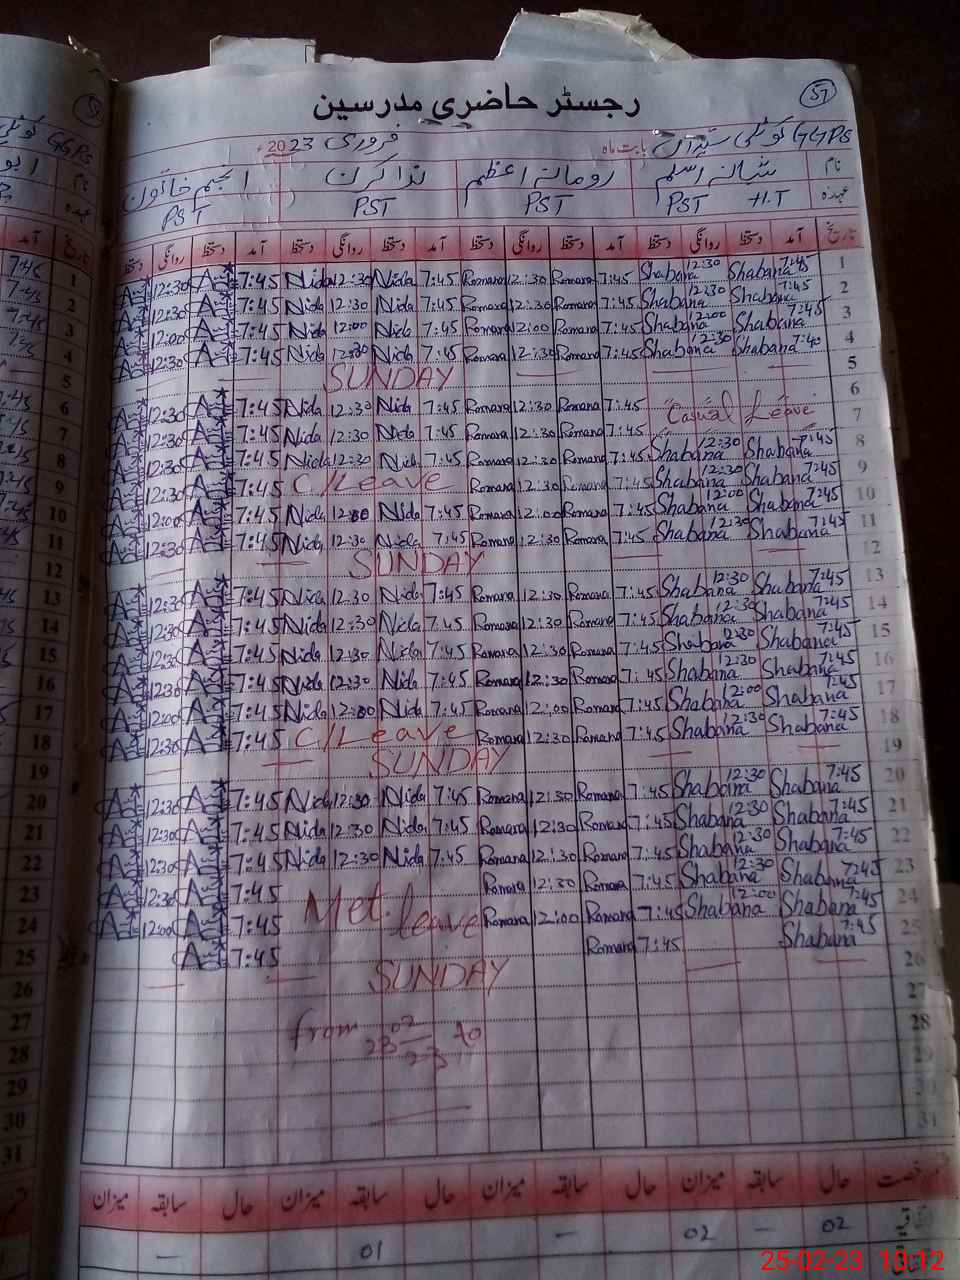 رجسٹر حاضری مدرسین
57
GGPS کوٹلی سیداں بابت ماہ فروری 2023ء
نام شبانہ اسلم رومانہ اعظم ندا کرن انجم خاتون
عہدہ H.T PST PST PST PST
تاریخ آمد دستخط روانگی دستخط آمد دستخط روانگی دستخط آمد دستخط روانگی دستخط آمد دستخط روانگی دستخط
1 7:45 Shabana 12:30 Shabana 7:45 Romana 12:30 Romana 7:45 Nida 12:30 Nida 7:45 12:30
2 7:45 Shabana 12:30 Shabana 7:45 Romana 12:30 Romana 7:45 Nida 12:30 Nida 7:45 12:30
3 7:45 Shabana 12:00 Shabana 7:45 Romana 12:00 Romana 7:45 Nida 12:00 Nida 7:45 12:00
4 7:40 Shabana 12:30 Shabana 7:45 Romana 12:30 Romana 7:45 Nida 12:30 Nida 7:45 12:30
5 SUNDAY
6 Casual Leave 7:45 Romana 12:30 Romana 7:45 Nida 12:30 Nida 7:45 12:30
7 7:45 Romana 12:30 Romana 7:45 Nida 12:30 Nida 7:45 12:30
8 7:45 Shabana 12:30 Shabana 7:45 Romana 12:30 Romana 7:45 Nida 12:30 Nida 7:45 12:30
9 7:45 Shabana 12:30 Shabana 7:45 Romana 12:30 Romana C/Leave 7:45 12:30
10 7:45 Shabana 12:00 Shabana 7:45 Romana 12:00 Romana 7:45 Nida 12:00 Nida 7:45 12:00
11 7:45 Shabana 12:30 Shabana 7:45 Romana 12:30 Romana 7:45 Nida 12:30 Nida 7:45 12:30
12 SUNDAY
13 7:45 Shabana 12:30 Shabana 7:45 Romana 12:30 Romana 7:45 Nida 12:30 Nida 7:45 12:30
14 7:45 Shabana 12:30 Shabana 7:45 Romana 12:30 Romana 7:45 Nida 12:30 Nida 7:45 12:30
15 7:45 Shabana 12:30 Shabana 7:45 Romana 12:30 Romana 7:45 Nida 12:30 Nida 7:45 12:30
16 7:45 Shabana 12:30 Shabana 7:45 Romana 12:30 Romana 7:45 Nida 12:30 Nida 7:45 12:30
17 7:45 Shabana 12:00 Shabana 7:45 Romana 12:00 Romana 7:45 Nida 12:00 Nida 7:45 12:00
18 7:45 Shabana 12:30 Shabana 7:45 Romana 12:30 Romana C/Leave 7:45 12:30
19 SUNDAY
20 7:45 Shabana 12:30 Shabana 7:45 Romana 12:30 Romana 7:45 Nida 12:30 Nida 7:45 12:30
21 7:45 Shabana 12:30 Shabana 7:45 Romana 12:30 Romana 7:45 Nida 12:30 Nida 7:45 12:30
22 7:45 Shabana 12:30 Shabana 7:45 Romana 12:30 Romana 7:45 Nida 12:30 Nida 7:45 12:30
23 7:45 Shabana 12:30 Shabana 7:45 Romana 12:30 Romana Met. leave 7:45 12:30
24 7:45 Shabana 12:00 Shabana 7:45 Romana 12:00 Romana 7:45 12:00
25 7:45 Shabana 7:45 Romana 7:45
26 SUNDAY
27
28 from 23 02 23 to
29
30
31
رخصت حال سابقہ میزان حال سابقہ میزان حال سابقہ میزان حال سابقہ میزان
02 - 02 - 01 -
25-02-23 10:12